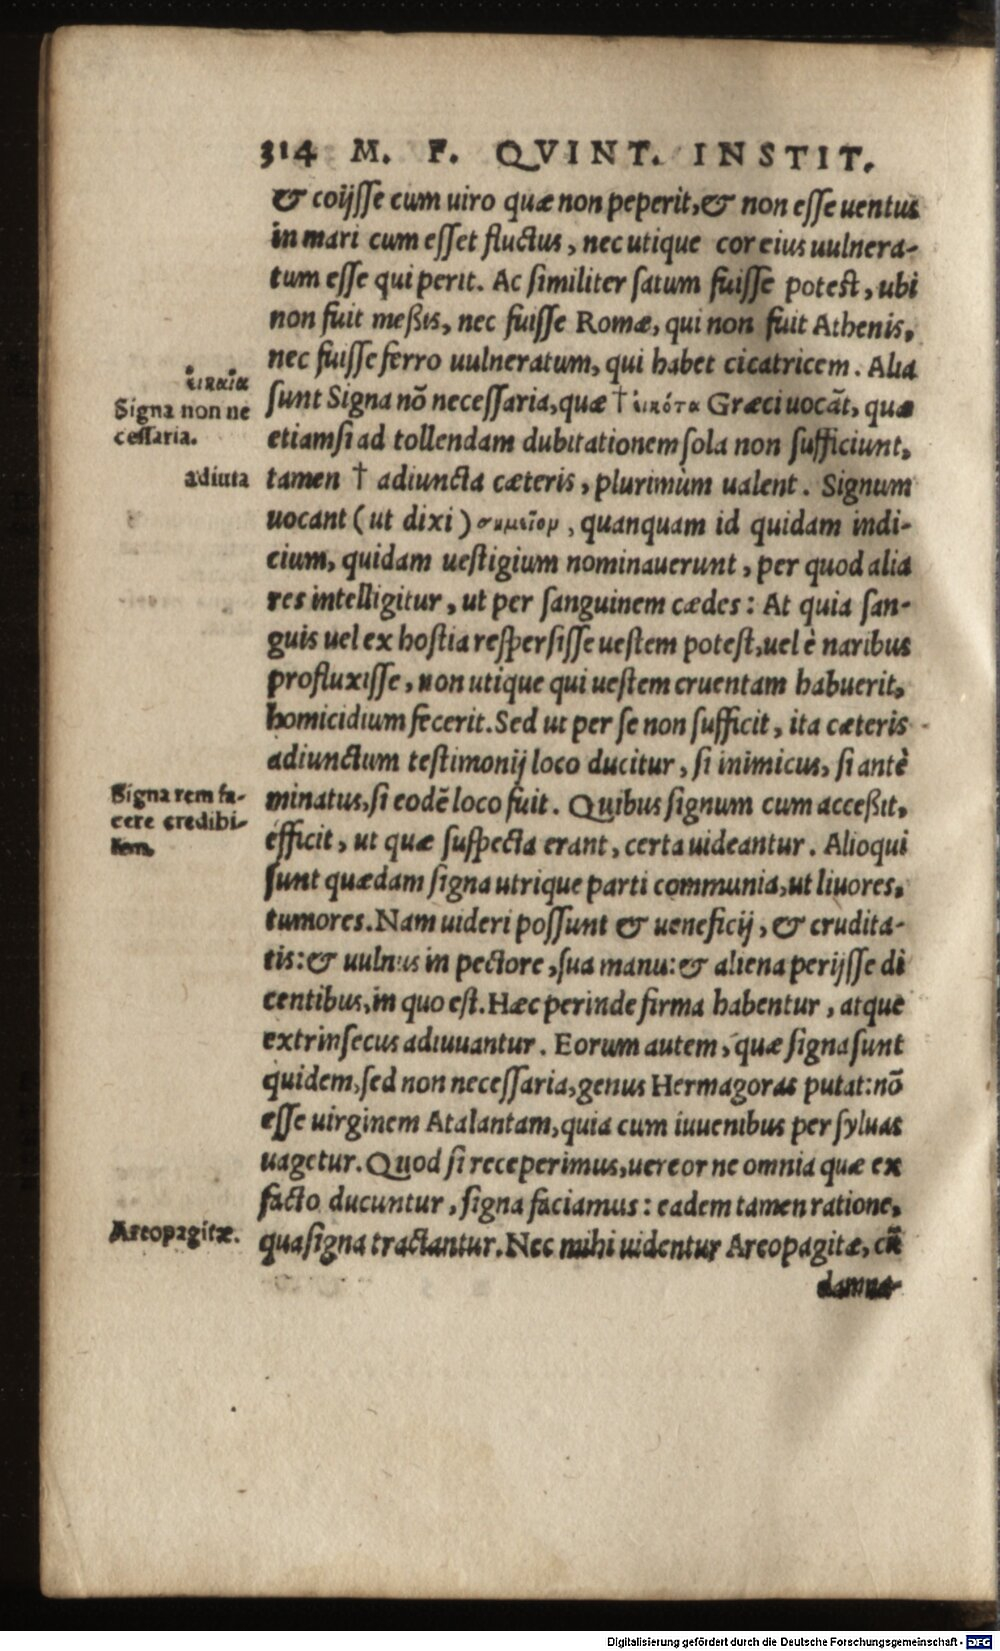 314 M. F. QVINT. INSTIT.
& coijsse cum uiro quæ non peperit, & non esse uentus
in mari cum esset fluctus, nec utique cor eius uulnera-
tum esse qui perit. Ac similiter satum fuisse potest, ubi
non fuit meßis, nec fuisse Romæ, qui non fuit Athenis,
nec fuisse ferro uulneratum, qui habet cicatricem. Alia
sunt Signa nõ necessaria, quæ † εικότα Græci uocãt, quæ
etiamsi ad tollendam dubitationem sola non sufficiunt,
tamen † adiuncta cæteris, plurimùm ualent. Signum
uocant (ut dixi) σημεῖομ, quanquam id quidam indi-
cium, quidam uestigium nominauerunt, per quod alia
res intelligitur, ut per sanguinem cædes: At quia san-
guis uel ex hostia respersisse uestem potest, uel è naribus
profluxisse, non utique qui uestem cruentam habuerit,
homicidium fecerit. Sed ut per se non sufficit, ita cæteris
adiunctum testimonij loco ducitur, si inimicus, si antè
minatus, si eodẽ loco fuit. Quibus signum cum acceßit,
efficit, ut quæ suspecta erant, certa uideantur. Alioqui
sunt quædam signa utrique parti communia, ut liuores,
tumores. Nam uideri possunt & ueneficij, & crudita-
tis: & uulnus in pectore, sua manu: & aliena perijsse di
centibus, in quo est. Hæc perinde firma habentur, atque
extrinsecus adiuuantur. Eorum autem, quæ signa sunt
quidem, sed non necessaria, genus Hermagoras putat: nõ
esse uirginem Atalantam, quia cum iuuenibus per syluas
uagetur. Quod si receperimus, uereor ne omnia quæ ex
facto ducuntur, signa faciamus: eadem tamen ratione,
qua signa tractantur. Nec mihi uidentur Areopagitæ, cũ
damna-
Signa non ne
cessaria.
adiuta
Signa rem fa-
cere credibi-
lem.
Areopagitæ.
Digitalisierung gefördert durch die Deutsche Forschungsgemeinschaft - DFG